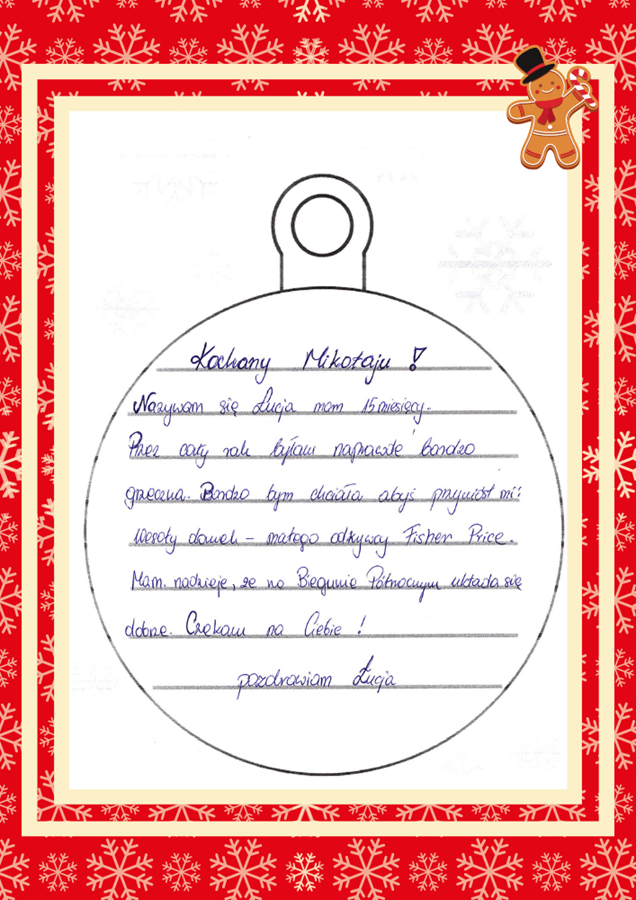 Kochany Mikołaju !
Nazywam się Łucja mam 15 miesięcy.
Przez cały rok byłam naprawdę bardzo
grzeczna. Bardzo bym chciała abyś przyniósł mi:
Wesoły domek – małego odkrywcy Fisher Price.
Mam nadzieje, że na Biegunie Północnym układa się
dobrze. Czekam na Ciebie !
pozdrawiam Łucja